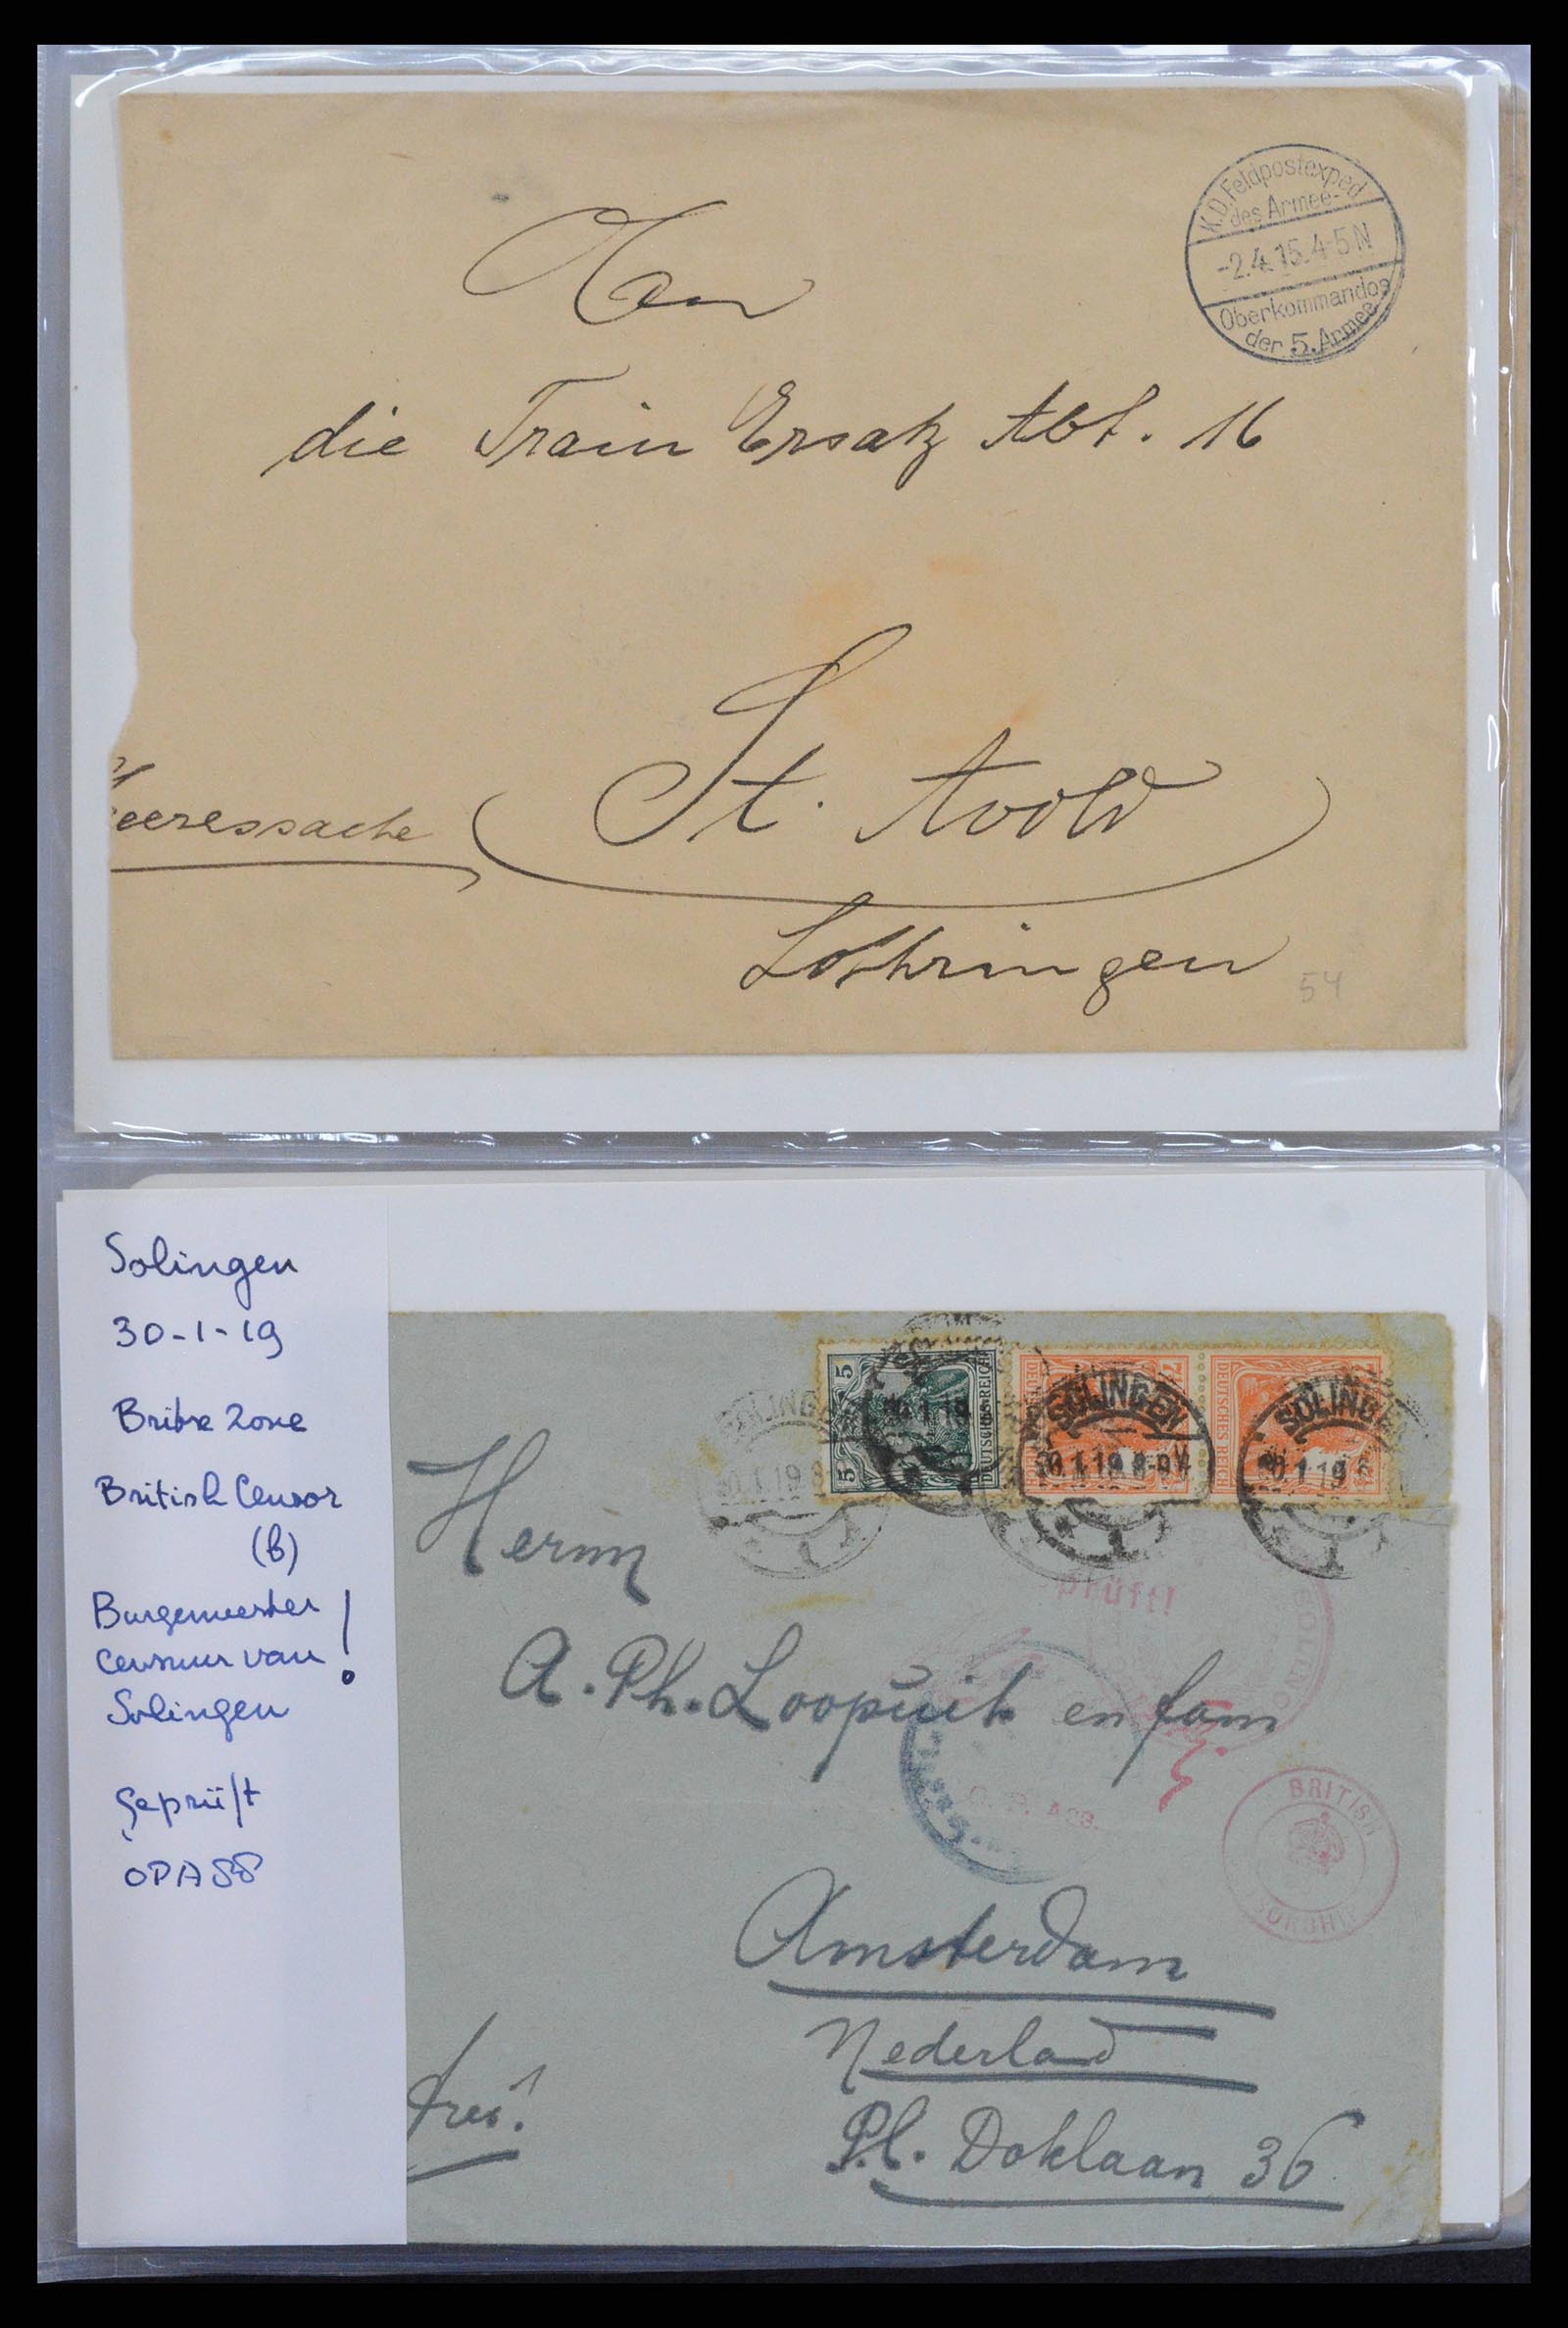 K.D. Feldpostexped.
des Armee-
-2.4.15.4-5N
Oberkommandos
der 5. Armee
An
die Train Ersatz Abt. 16
St. Avold
Heeressache
Lothringen
54
Solingen
30-1-19
Britse Zone
British Censor
(b)
Burgemeester
censuur van !
Solingen
Geprüft
OPASS
5
5
DEUTSCHES REICH
DEUTSCHES REICH
SOLINGEN
30.1.19 8-9V
1
SOLINGEN
30.1.19 8
1
SOLING
30.1.19 8
1
prüft!
SOLING
Herrn
A. Ph. Loopuit en fam
BRITISH
Amsterdam
Nederland
frei!
Pl. Doklaan 36